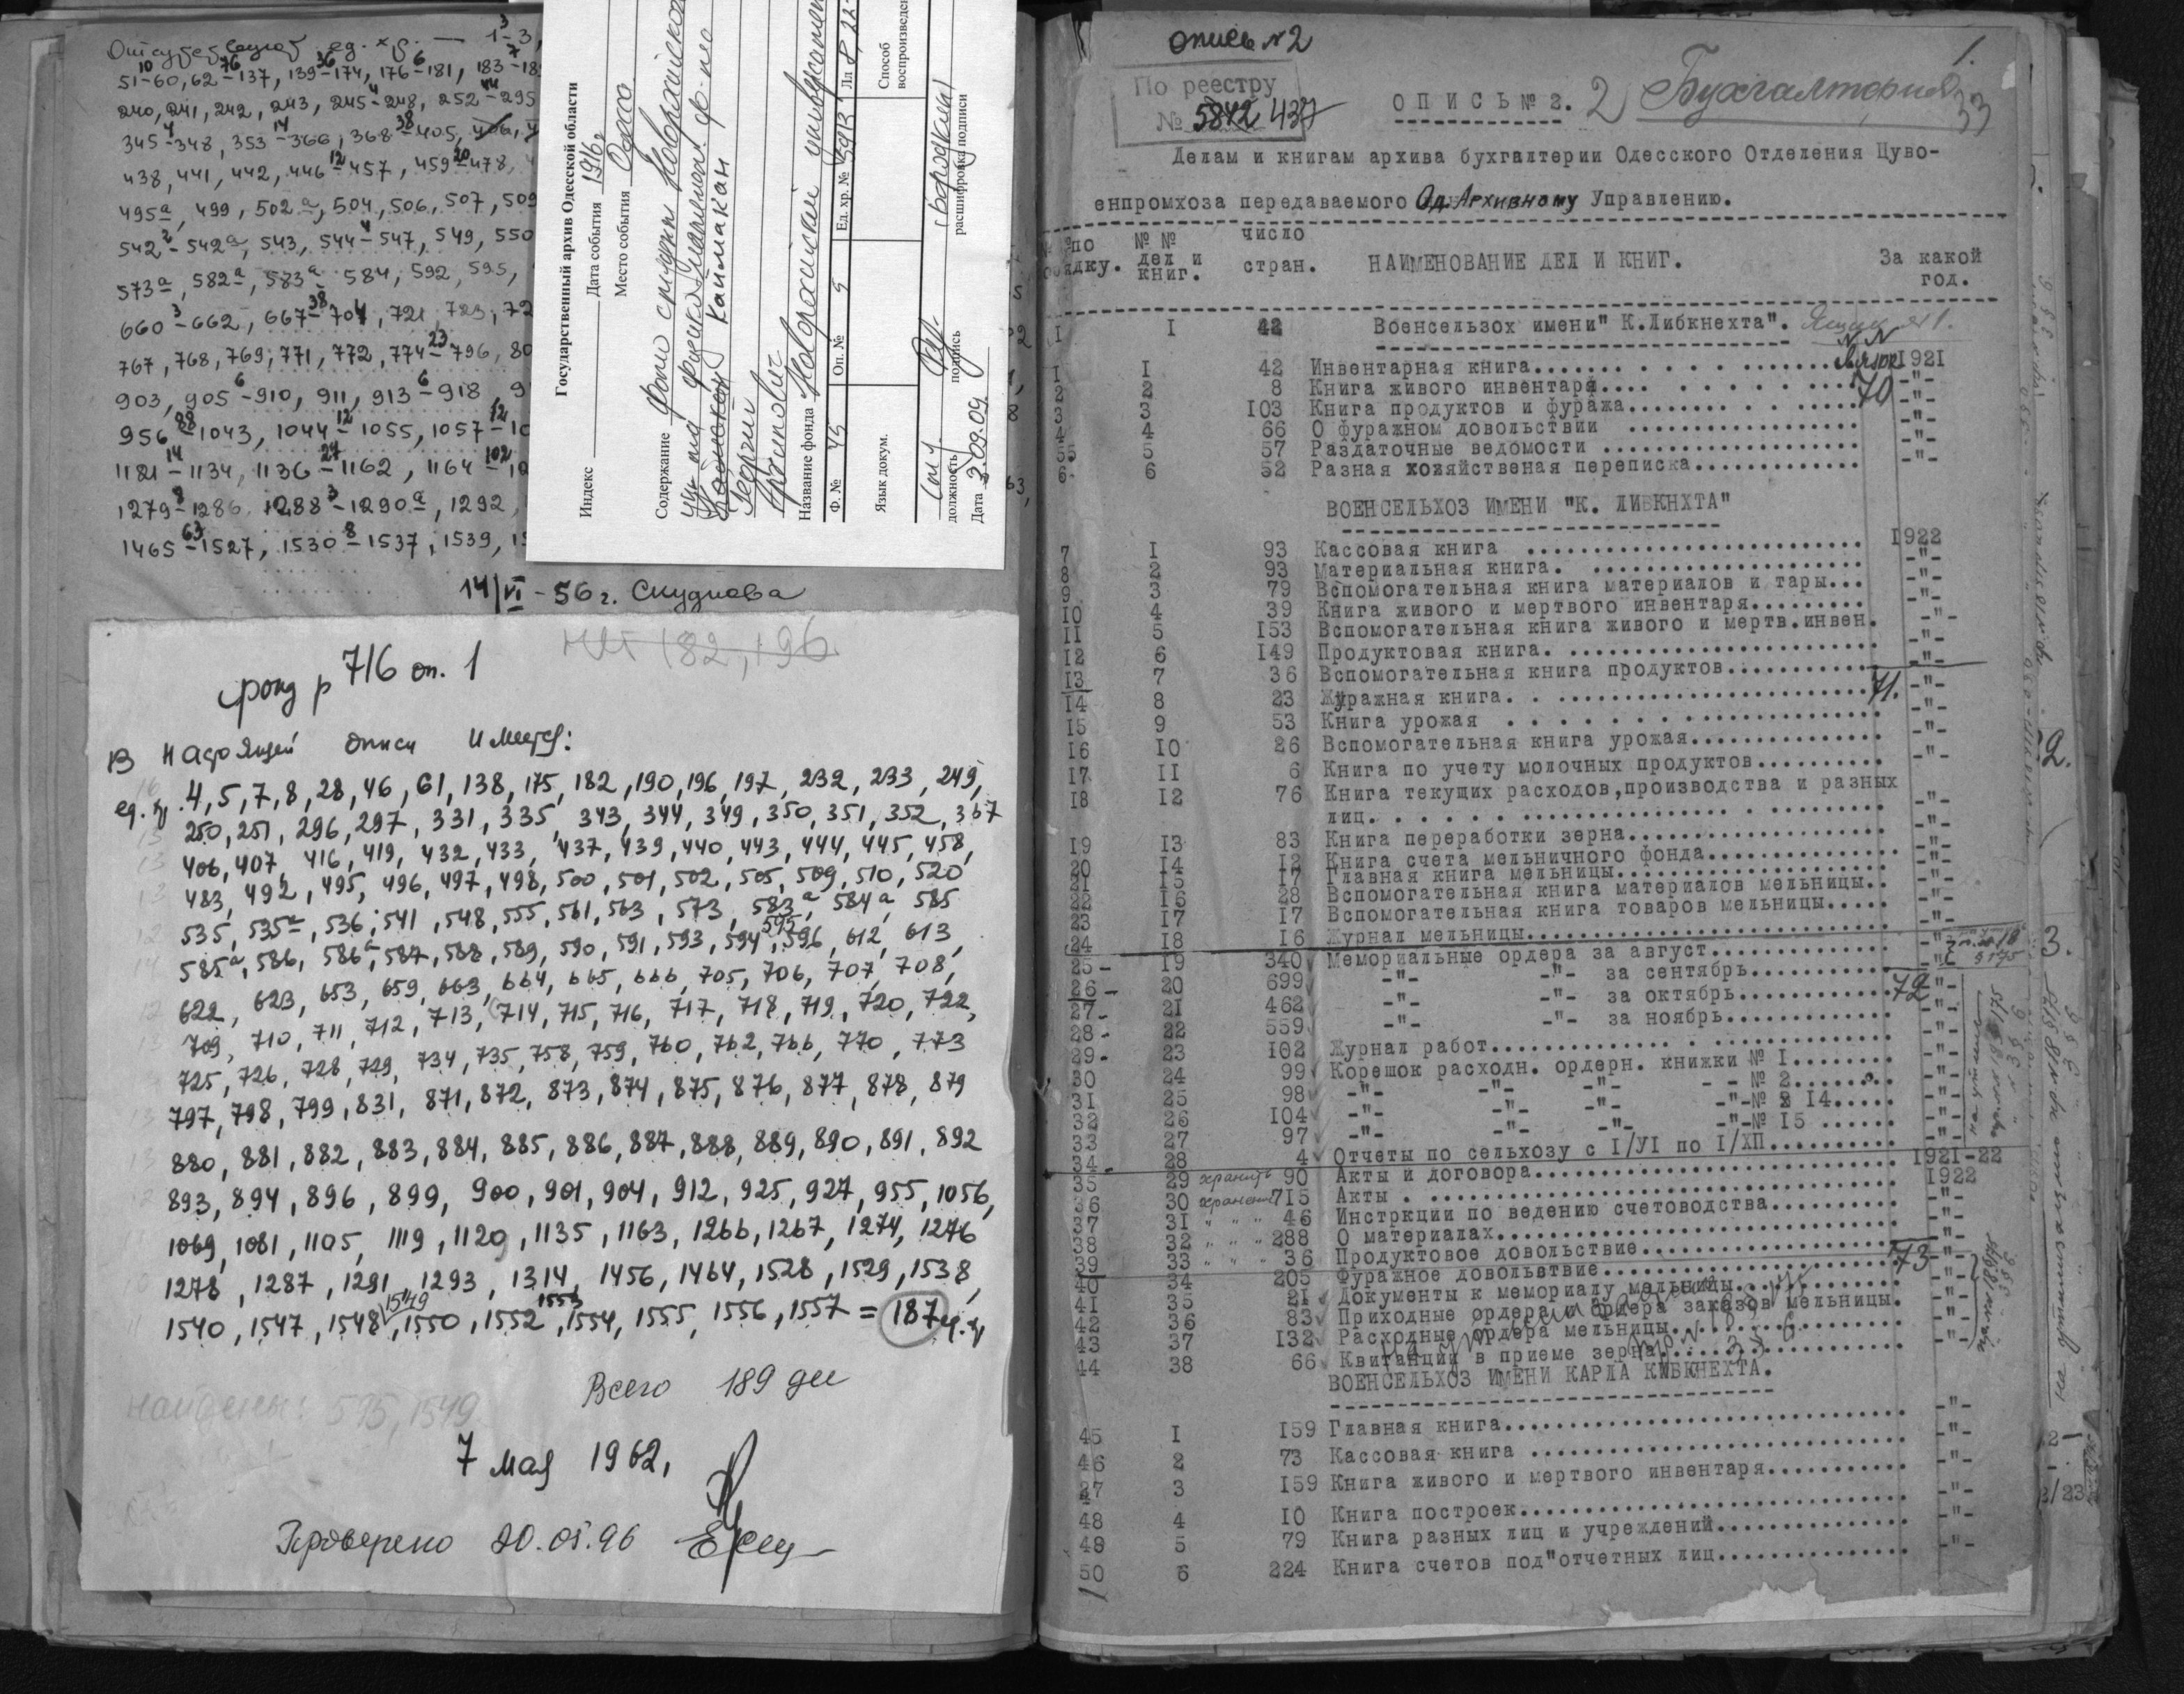 Отсутствуют ед. хр. — 1-3,
51-60, 62-137, 139-174, 176-181, 183-18
240, 241, 242, 243, 245-248, 252-295
345-348, 353-366, 368-405, 406,
438, 441, 442, 446-457, 459-478,
495а, 499, 502а, 504, 506, 507, 509
542-542а, 543, 544-547, 549, 550
573а, 582а, 583а 584, 592, 595,
660-662, 667-704, 721, 723, 72
767, 768, 769, 771, 772, 774-796, 80
903, 905-910, 911, 913-918, 9
956-1043, 1044-1055, 1057-10
1121-1134, 1136-1162, 1164-
1279-1286, 1288-1290а, 1292
1465-1527, 1530-1537, 1539, 15
14/VI-56 г. Скуднова
Государственный архив Одесской области
Индекс Дата события 1916г
Место события Одесса
Содержание Фото студент Новороссийского
Каймакан
Георгий
Название фонда Новороссийский университет
Ф. № 45 Оп. № 5 Ед. хр. № 5912 Лл 8, 22
Язык докум. Способ воспроизведен
должность подпись расшифровка подписи
Дата 3.09.09
нет 182, 196
фонд р 716 оп. 1
В настоящей описи имеется:
ед. хр. 4, 5, 7, 8, 28, 46, 61, 138, 175, 182, 190, 196, 197, 232, 233, 249,
250, 251, 296, 297, 331, 335, 343, 344, 349, 350, 351, 352, 367
406, 407, 416, 419, 432, 433, 437, 439, 440, 443, 444, 445, 458,
483, 492, 495, 496, 497, 498, 500, 501, 502, 505, 509, 510, 520
535, 535а, 536, 541, 548, 555, 561, 563, 573, 583а, 584а, 585
585а, 586, 586а, 587, 588, 589, 590, 591, 593, 594, 595, 596, 612, 613,
622, 623, 653, 659, 663, 664, 665, 666, 705, 706, 707, 708,
709, 710, 711, 712, 713, 714, 715, 716, 717, 718, 719, 720, 722,
725, 726, 728, 729, 734, 735, 758, 759, 760, 762, 766, 770, 773
797, 798, 799, 831, 871, 872, 873, 874, 875, 876, 877, 878, 879
880, 881, 882, 883, 884, 885, 886, 887, 888, 889, 890, 891, 892
893, 894, 896, 899, 900, 901, 904, 912, 925, 927, 955, 1056,
1069, 1081, 1105, 1119, 1120, 1135, 1163, 1266, 1267, 1274, 1276
1278, 1287, 1291, 1293, 1314, 1456, 1464, 1528, 1529, 1538,
1540, 1547, 1548, 1549, 1550, 1552, 1553, 1554, 1555, 1556, 1557 = 187 ед. хр
Всего 189 дел
найдены: 595, 1549
7 мая 1962,
Проверено 20.05.96
опись №2
1.
По реестру
№ 5842 437
ОПИСЬ № 2. 2) Бухгалтерия
33
Делам и книгам архива бухгалтерии Одесского Отделения Цуво-
енпромхоза передаваемого Од. Архивному Управлению.
№ по порядку. №№ дел и книг. число стран. НАИМЕНОВАНИЕ ДЕЛ И КНИГ. За какой год.
I I 42 Военсельзох имени" К.Либкнехта". Ящик №1.
№№ связок
I I 42 Инвентарная книга 1921
2 2 8 Книга живого инвентаря 70 -"-
3 3 103 Книга продуктов и фуража -"-
4 4 66 О фуражном довольствии -"-
55 5 57 Раздаточные ведомости -"-
6 6 52 Разная хозяйственая переписка -"-
ВОЕНСЕЛЬХОЗ ИМЕНИ "К. ЛИБКНХТА"
7 I 93 Кассовая книга 1922
8 2 93 Материальная книга. -"-
9 3 79 Вспомогательная книга материалов и тары... -"-
10 4 39 Книга живого и мертвого инвентаря -"-
II 5 153 Вспомогательная книга живого и мертв.инвен. -"-
12 6 149 Продуктовая книга. -"-
13 7 36 Вспомогательная книга продуктов -"-
14 8 23 Журажная книга. 71. -"-
15 9 53 Книга урожая -"-
16 10 26 Вспомогательная книга урожая -"-
17 II 6 Книга по учету молочных продуктов -"-
18 12 76 Книга текущих расходов,производства и разных
лиц. -"-
19 13 83 Книга переработки зерна -"-
20 14 12 Книга счета мельничного фонда -"-
21 15 17 Главная книга мельницы -"-
22 16 28 Вспомогательная книга материалов мельницы.. -"-
23 17 17 Вспомогательная книга товаров мельницы..... -"-
24 18 16 Журнал мельницы -"-
25 - 19 340 Мемориальные ордера за август -"-
26 - 20 699 -"- -"- за сентябрь -"-
27 - 21 462 -"- -"- за октябрь 72 -"-
28 - 22 559 -"- -"- за ноябрь -"-
29 - 23 102 Журнал работ -"-
30 24 99 Корешок расходн. ордерн. книжки № I -"-
31 25 98 -"- -"- -"- - - № 2 -"-
32 26 104 -"- -"- -"- -"-№ 2 14 -"-
33 27 97 -"- -"- -"- -"-№ 15 -"-
34 - 28 4 Отчеты по сельхозу с I/УI по I/ХП 1921-22
35 29 хранить 90 Акты и договора 1922
36 30 хранить 715 Акты -"-
37 31 " " " 46 Инстркции по ведению счетоводства -"-
38 32 " " " 288 О материалах -"-
39 33 " " " 36 Продуктовое довольствие -"-
40 34 205 Фуражное довольствие 73 -"-
41 35 21 Документы к мемориалу мельницы -"-
42 36 83 Приходные ордера и ордера заказов мельницы. -"-
43 37 132 Расходные ордера мельницы -"-
44 38 66 Квитанции в приеме зерна
ВОЕНСЕЛЬХОЗ ИМЕНИ КАРЛА КИБКНЕХТА.
45 I 159 Главная книга -"-
46 2 73 Кассовая книга -"-
27 3 159 Книга живого и мертвого инвентаря -"-
48 4 10 Книга построек -"-
49 5 79 Книга разных лиц и учреждений -"-
50 6 224 Книга счетов под"отчетных лиц -"-
2.
3.